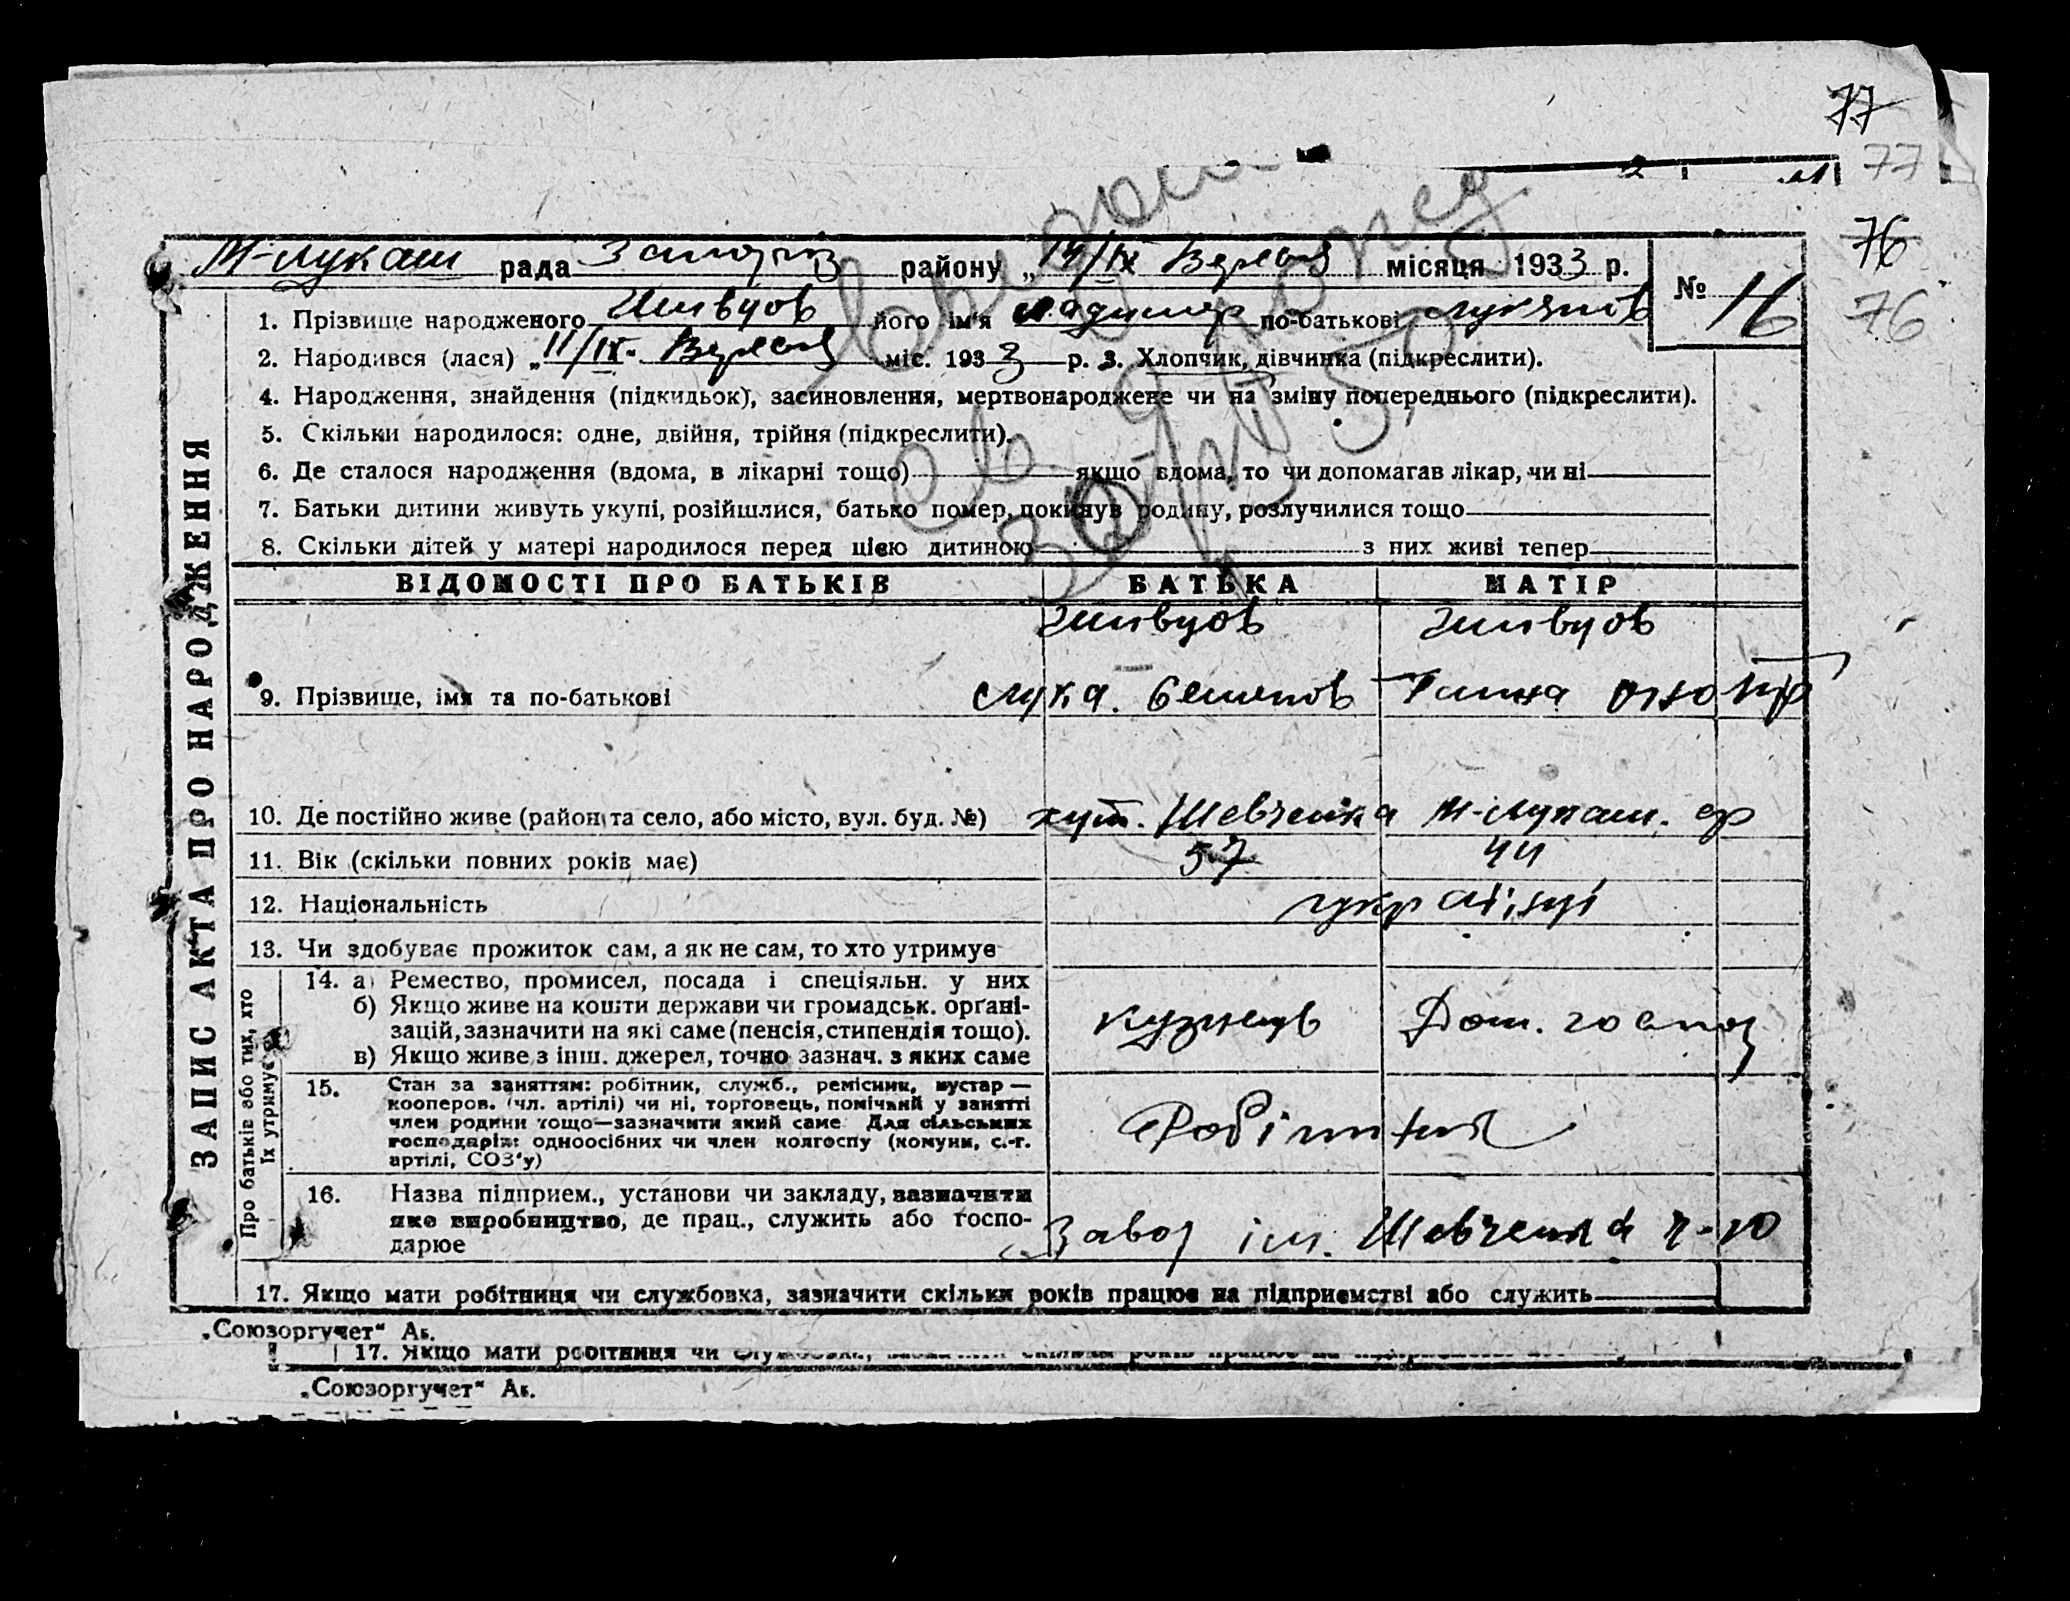 77
77
76
76
М-Лукаш рада Запоріз району „14/IX Вересня місяця 1933 р.
№ 16
1. Прізвище народженого Шивцов його ім'я Владимир по-батькові Лукянов
2. Народився (лася) „11/IX. Вересня міс. 1933 р. 3. Хлопчик, дівчинка (підкреслити).
4. Народження, знайдення (підкидьок), засиновлення, мертвонароджене чи на зміну попереднього (підкреслити).
5. Скільки народилося: одне, двійня, трійня (підкреслити).
6. Де сталося народження (вдома, в лікарні тощо) якщо вдома, то чи допомагав лікар, чи ні
7. Батьки дитини живуть укупі, розійшлися, батько помер, покинув родину, розлучилися тощо
8. Скільки дітей у матері народилося перед цією дитиною з них живі тепер
ЗАПИС АКТА ПРО НАРОДЖЕННЯ
ВІДОМОСТІ ПРО БАТЬКІВ БАТЬКА МАТІР
Шивцов Шивцов
9. Прізвище, імя та по-батькові Лука. Семенов Ганна
10. Де постійно живе (район та село, або місто, вул. буд. №) хут. Шевченка М-Лукаш. ср
11. Вік (скільки повних років має) 57 44
12. Національність українці
13. Чи здобуває прожиток сам, а як не сам, то хто утримує
Про батьків або тих, хто
їх утримує
14. а) Ремество, промисел, посада і спеціяльн. у них
б) Якщо живе на кошти держави чи громадськ. органі-
зацій, зазначити на які саме (пенсія, стипендія тощо).
в) Якщо живе з інш. джерел, точно зазнач. з яких саме
кузнець Дом. господ
15. Стан за заняттям: робітник, служб., ремісник, кустар —
кооперов. (чл. артілі) чи ні, торговець, помічний у занятті
член родини тощо—зазначити який саме Для сільських
господарів: одноосібних чи член колгоспу (комуни, с.-г.
артілі, СОЗ'у)
Робітник
16. Назва підприєм., установи чи закладу, зазначити
яке виробництво, де прац., служить або госпо-
дарює
Завод ім. Шевченка
17. Якщо мати робітниця чи службовка, зазначити скільки років працює на підприємстві або служить
„Союзоргучет" Ак.
17. Якщо мати робітниця чи
„Союзоргучет" Ак.